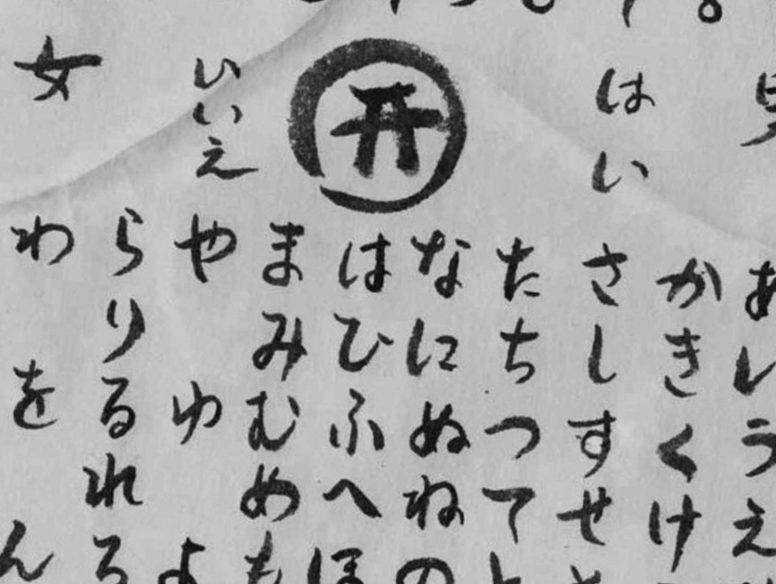 はい
いいえ
女
あいうえ
かきくけ
さしすせ
たちつてと
なにぬねの
はひふへほ
まみむめも
やゆよ
らりるれろ
わをん